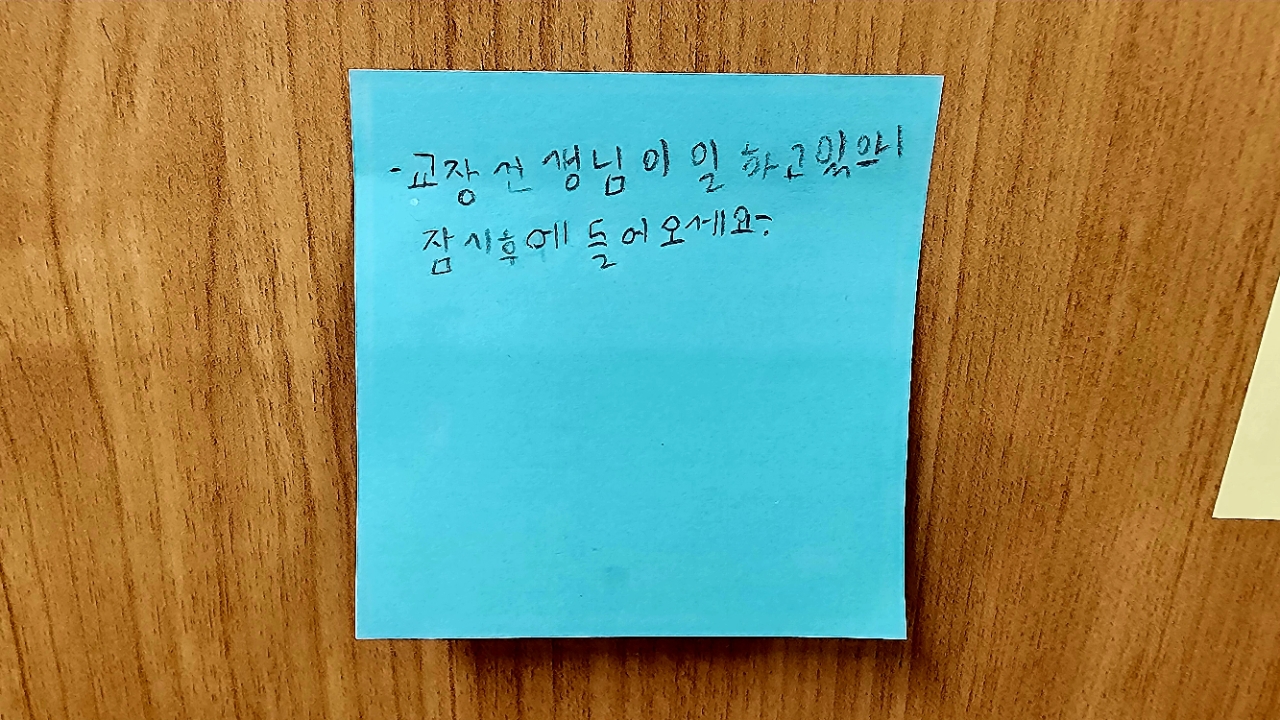 -교장 선생님이 일 하고있으니
잠시후에 들어오세요-